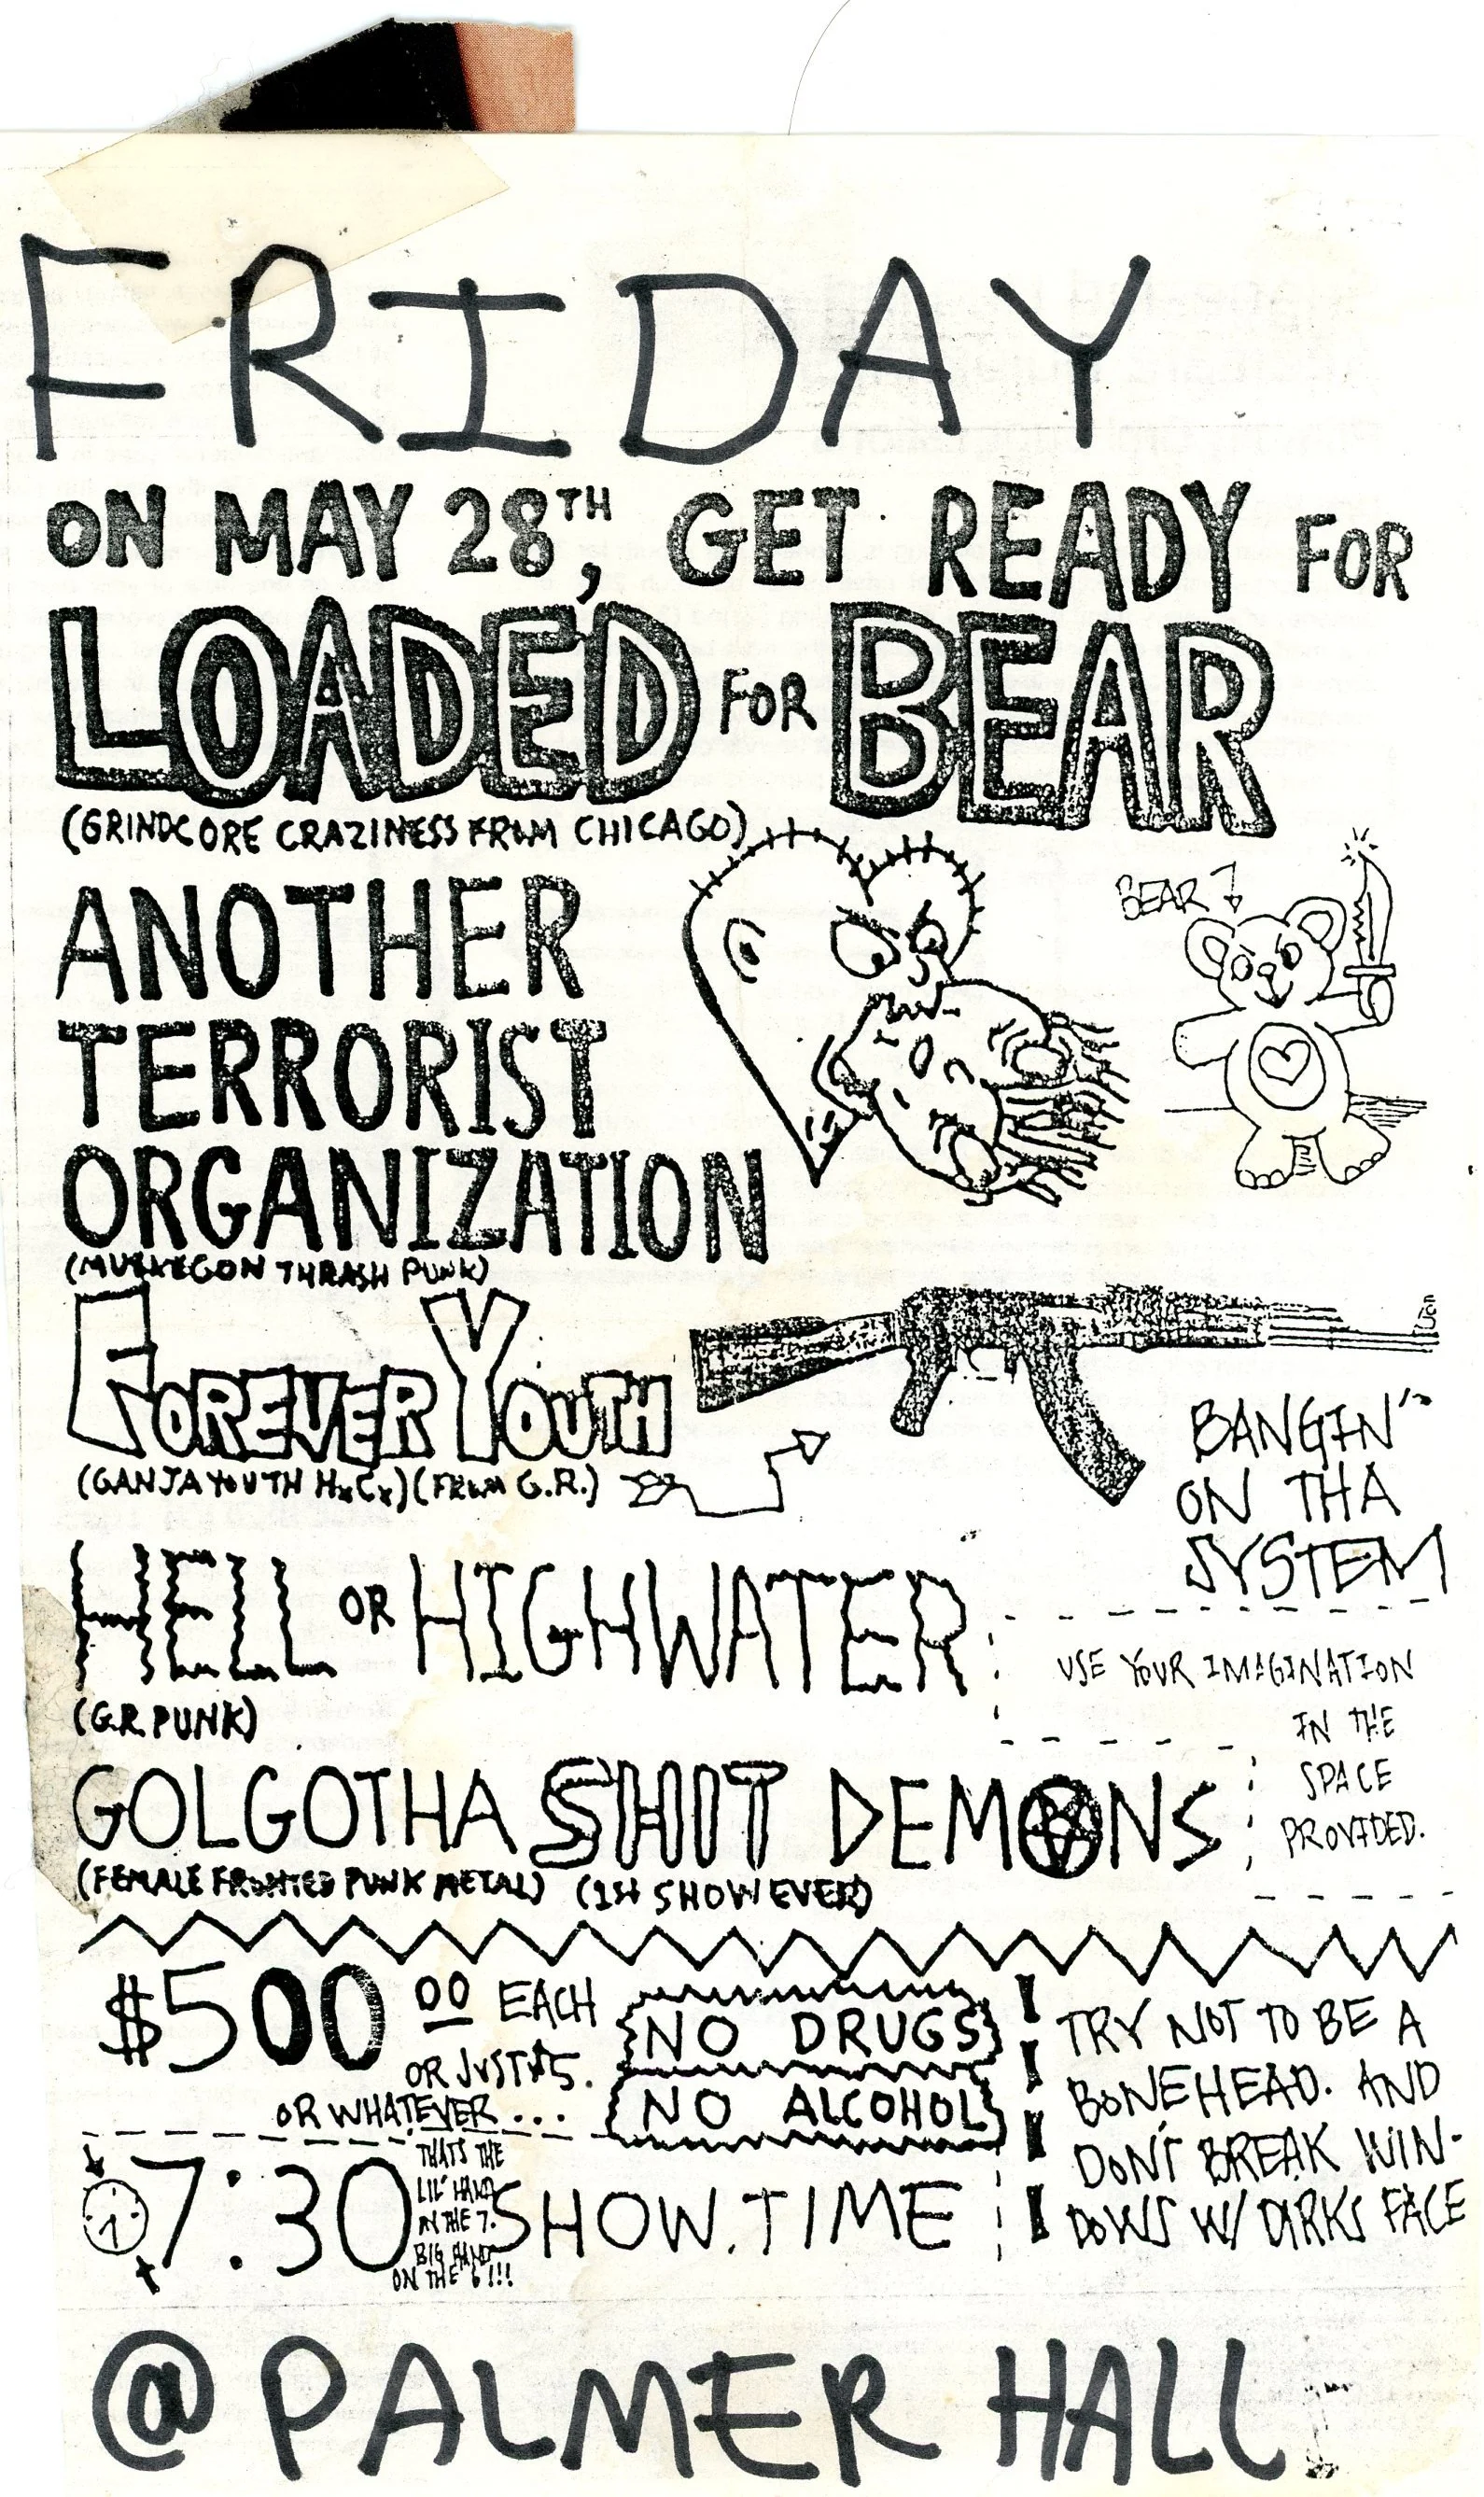 FRIDAY
ON MAY 28TH, GET READY FOR
LOADED FOR BEAR
(GRINDCORE CRAZINESS FROM CHICAGO)
BEAR
ANOTHER
TERRORIST
ORGANIZATION
(MUSKEGON THRASH PUNK)
FOREVER YOUTH
(GANJA YOUTH HxCx) (FROM G.R.)
BANGIN'
ON THA
SYSTEM
HELL OR HIGHWATER
(G.R. PUNK)
USE YOUR IMAGINATION
IN THE
SPACE
PROVIDED.
GOLGOTHA SHIT DEMONS
(FEMALE FRONTED PUNK METAL) (1ST SHOW EVER)
$500 00 EACH
OR JUST $5.
OR WHATEVER...
NO DRUGS
NO ALCOHOL
TRY NOT TO BE A
BONEHEAD. AND
DON'T BREAK WIN-
DOWS W/ DIRKS FACE
7:30 SHOW.TIME
THATS THE
LIL' HAND
ON THE 7.
BIG HAND
ON THE 6!!!
@ PALMER HALL